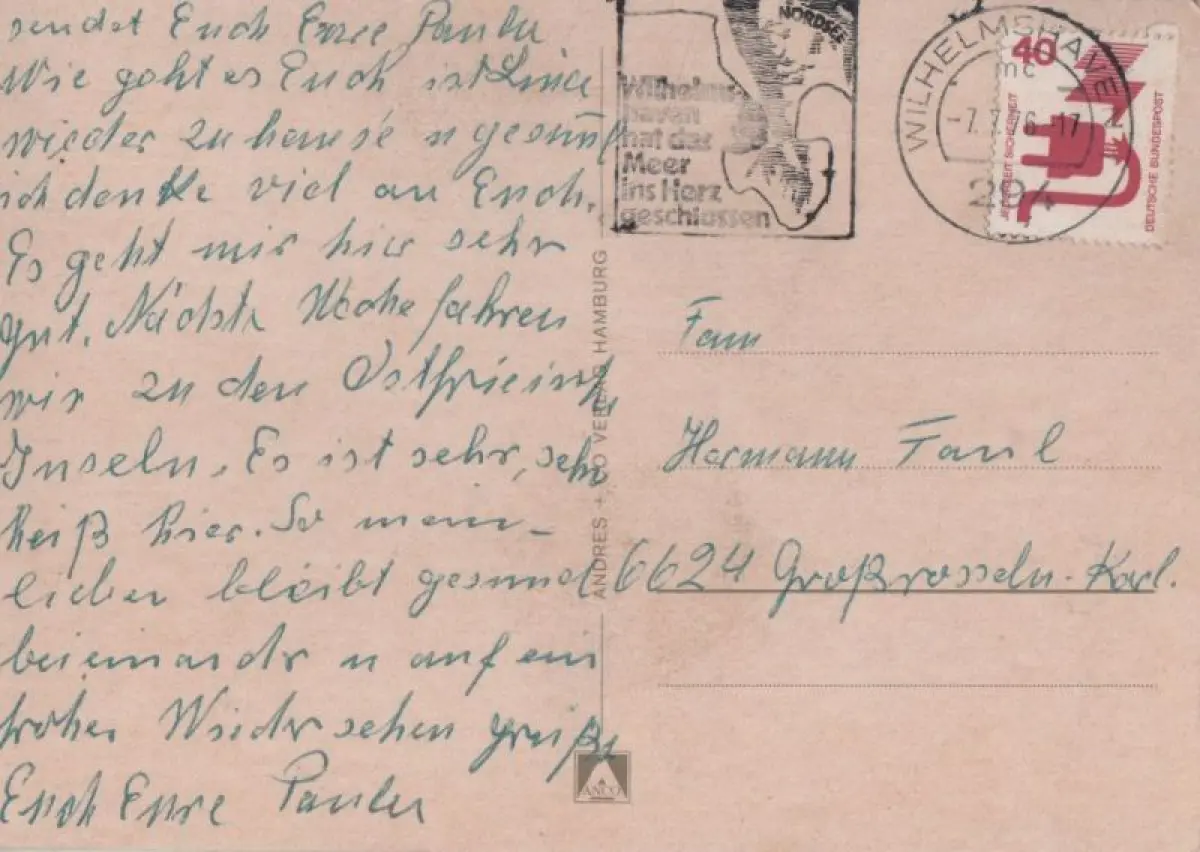 sendet Euch Eure Paula
Wie geht es Euch ist
wieder zu hause u gesund
ich denke viel an Euch.
Es geht mir hier sehr
gut. Nächste Woche fahren
wir zu den
Inseln. Es ist sehr, sehr
heiß hier. So mein-
lieber bleibt gesund
beieinander u auf ein
frohes Wiedersehen
Euch Eure Paula
NORDSEE
Wilhelms-
haven
hat das
Meer
ins Herz
geschlossen
WILHELMSHAVE
mc
294
40
JEDERZEIT SICHERHEIT
DEUTSCHE BUNDESPOST
ANDRES + CO VERLAG HAMBURG
Fam
Hermann Faul
6624 Großrosseln-Karl.
ANCO